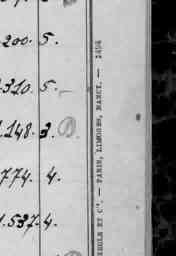 200. 5.
310. 5. –
148. 3.
774. 4.
537. 4.
ET Cie. — PARIS, LIMOGES, NANCY. — 2494